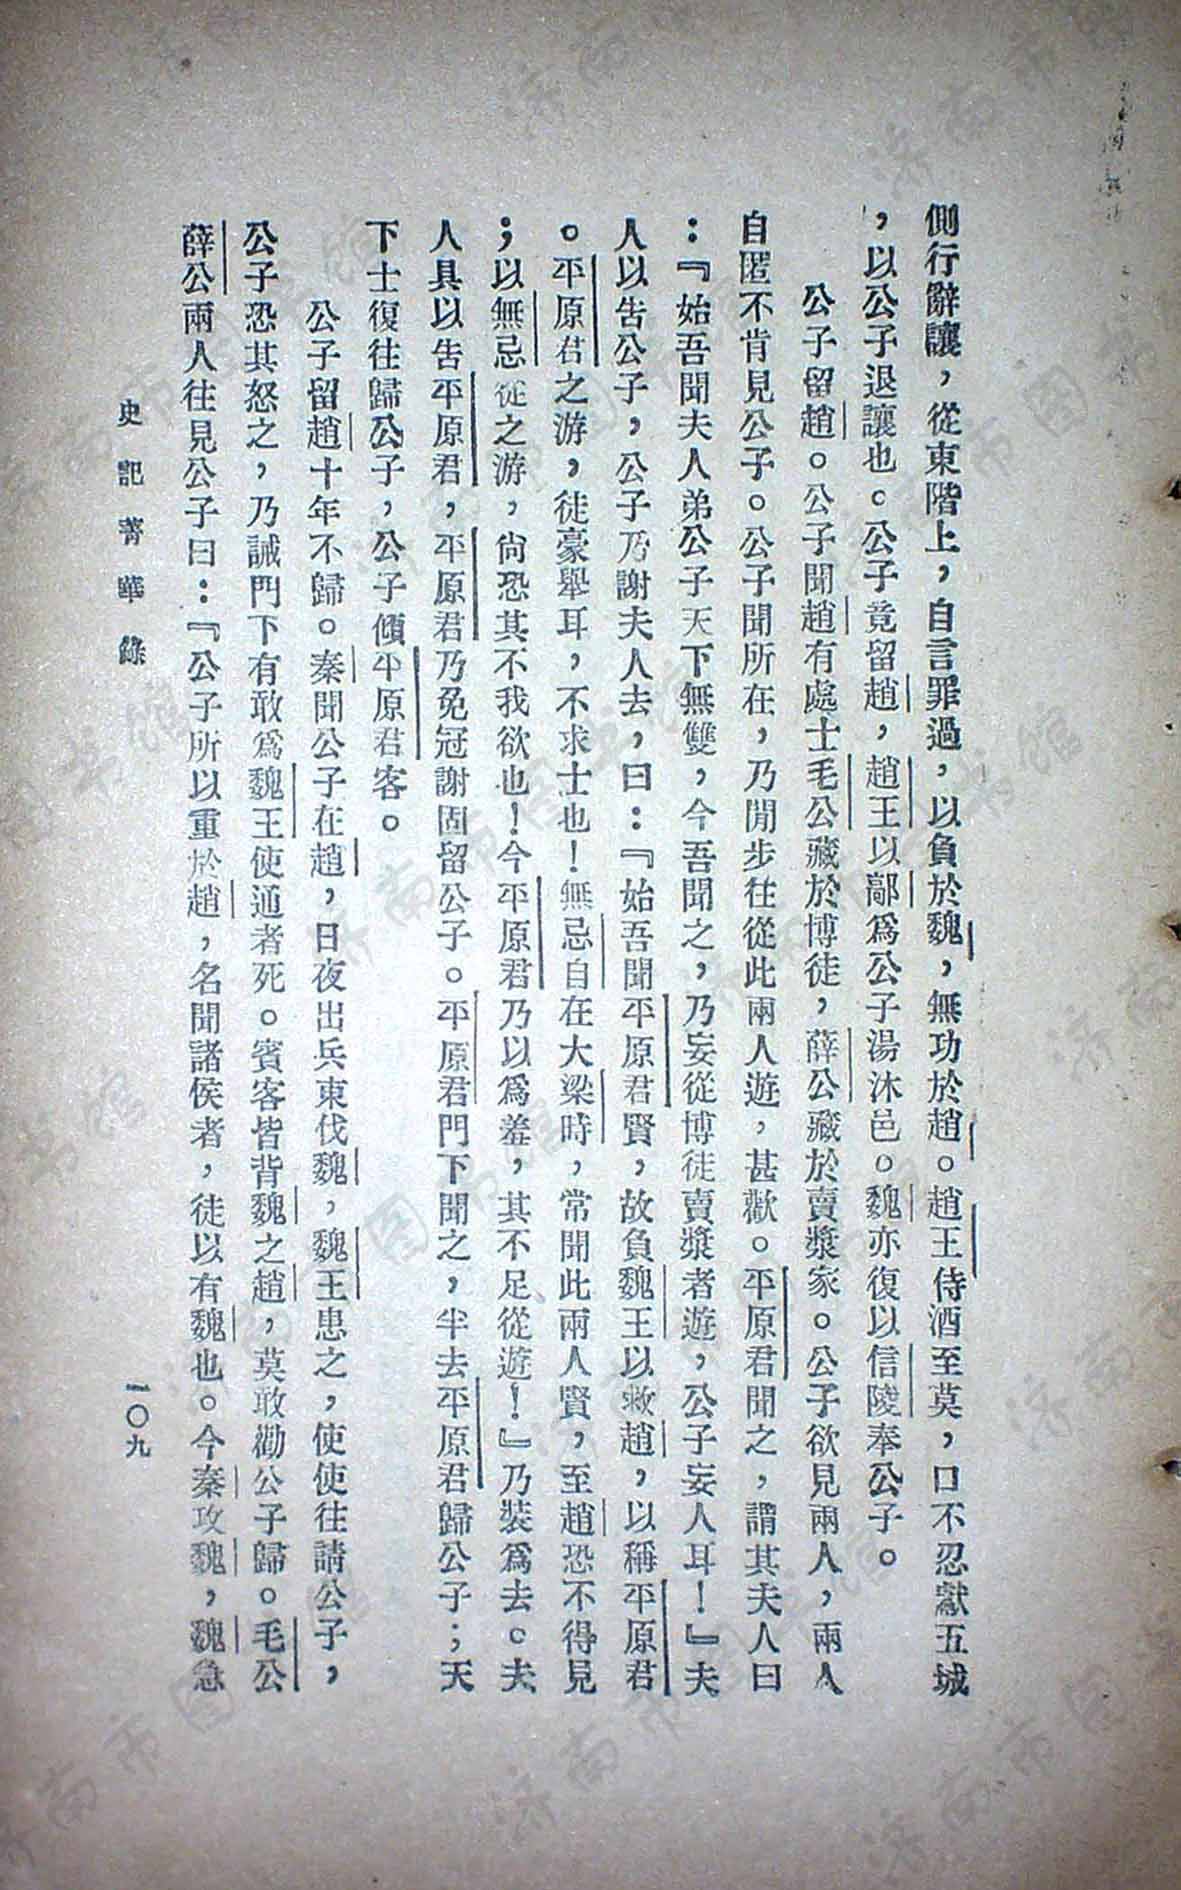 側行辭讓，從東階上，自言罪過，以負於魏，無功於趙。趙王侍酒至莫，口不忍獻五城
，以公子退讓也。公子竟留趙，趙王以鄗爲公子湯沐邑。魏亦復以信陵奉公子。
公子留趙。公子聞趙有處士毛公藏於博徒，薛公藏於賣漿家。公子欲見兩人，兩人
自匿不肯見公子。公子聞所在，乃閒步往從此兩人遊，甚歡。平原君聞之，謂其夫人曰
：『始吾聞夫人弟公子天下無雙，今吾聞之，乃妄從博徒賣漿者遊，公子妄人耳！』夫
人以告公子，公子乃謝夫人去，曰：『始吾聞平原君賢，故負魏王以救趙，以稱平原君
。平原君之游，徒豪舉耳，不求士也！無忌自在大梁時，常聞此兩人賢，至趙恐不得見
；以無忌從之游，尙恐其不我欲也！今平原君乃以爲羞，其不足從遊！』乃裝爲去。夫
人具以告平原君，平原君乃免冠謝固留公子。平原君門下聞之，半去平原君歸公子；天
下士復往歸公子，公子傾平原君客。
公子留趙十年不歸。秦聞公子在趙，日夜出兵東伐魏，魏王患之，使使往請公子，
公子恐其怒之，乃誡門下有敢爲魏王使通者死。賓客皆背魏之趙，莫敢勸公子歸。毛公
薛公兩人往見公子曰：『公子所以重於趙，名聞諸侯者，徒以有魏也。今秦攻魏，魏急
史記菁華錄
一〇九
济南市图书馆